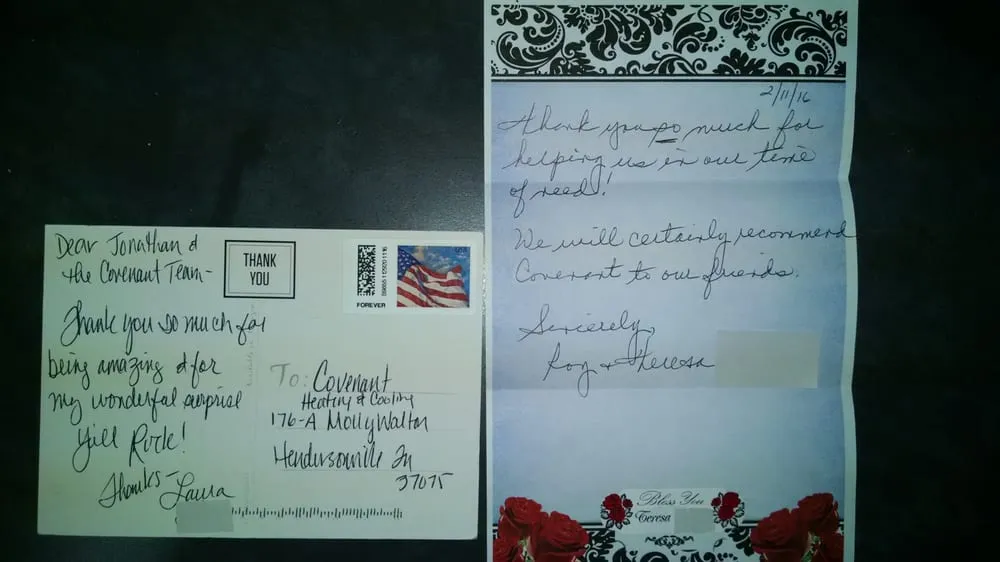 Dear Jonathan &
the Covenant Team-
Thank you so much for
being amazing & for
my wonderful surprise
Y'all Rock!
Thanks-
Laura
THANK
YOU
FOREVER
USA
To: Covenant
Heating & Cooling
176-A Molly Walton
Hendersonville Tn
37075
2/11/16
Thank you so much for
helping us in our time
of need!
We will certainly recommend
Covenant to our friends.
Sincerely,
Roy & Theresa
Bless You
Teresa